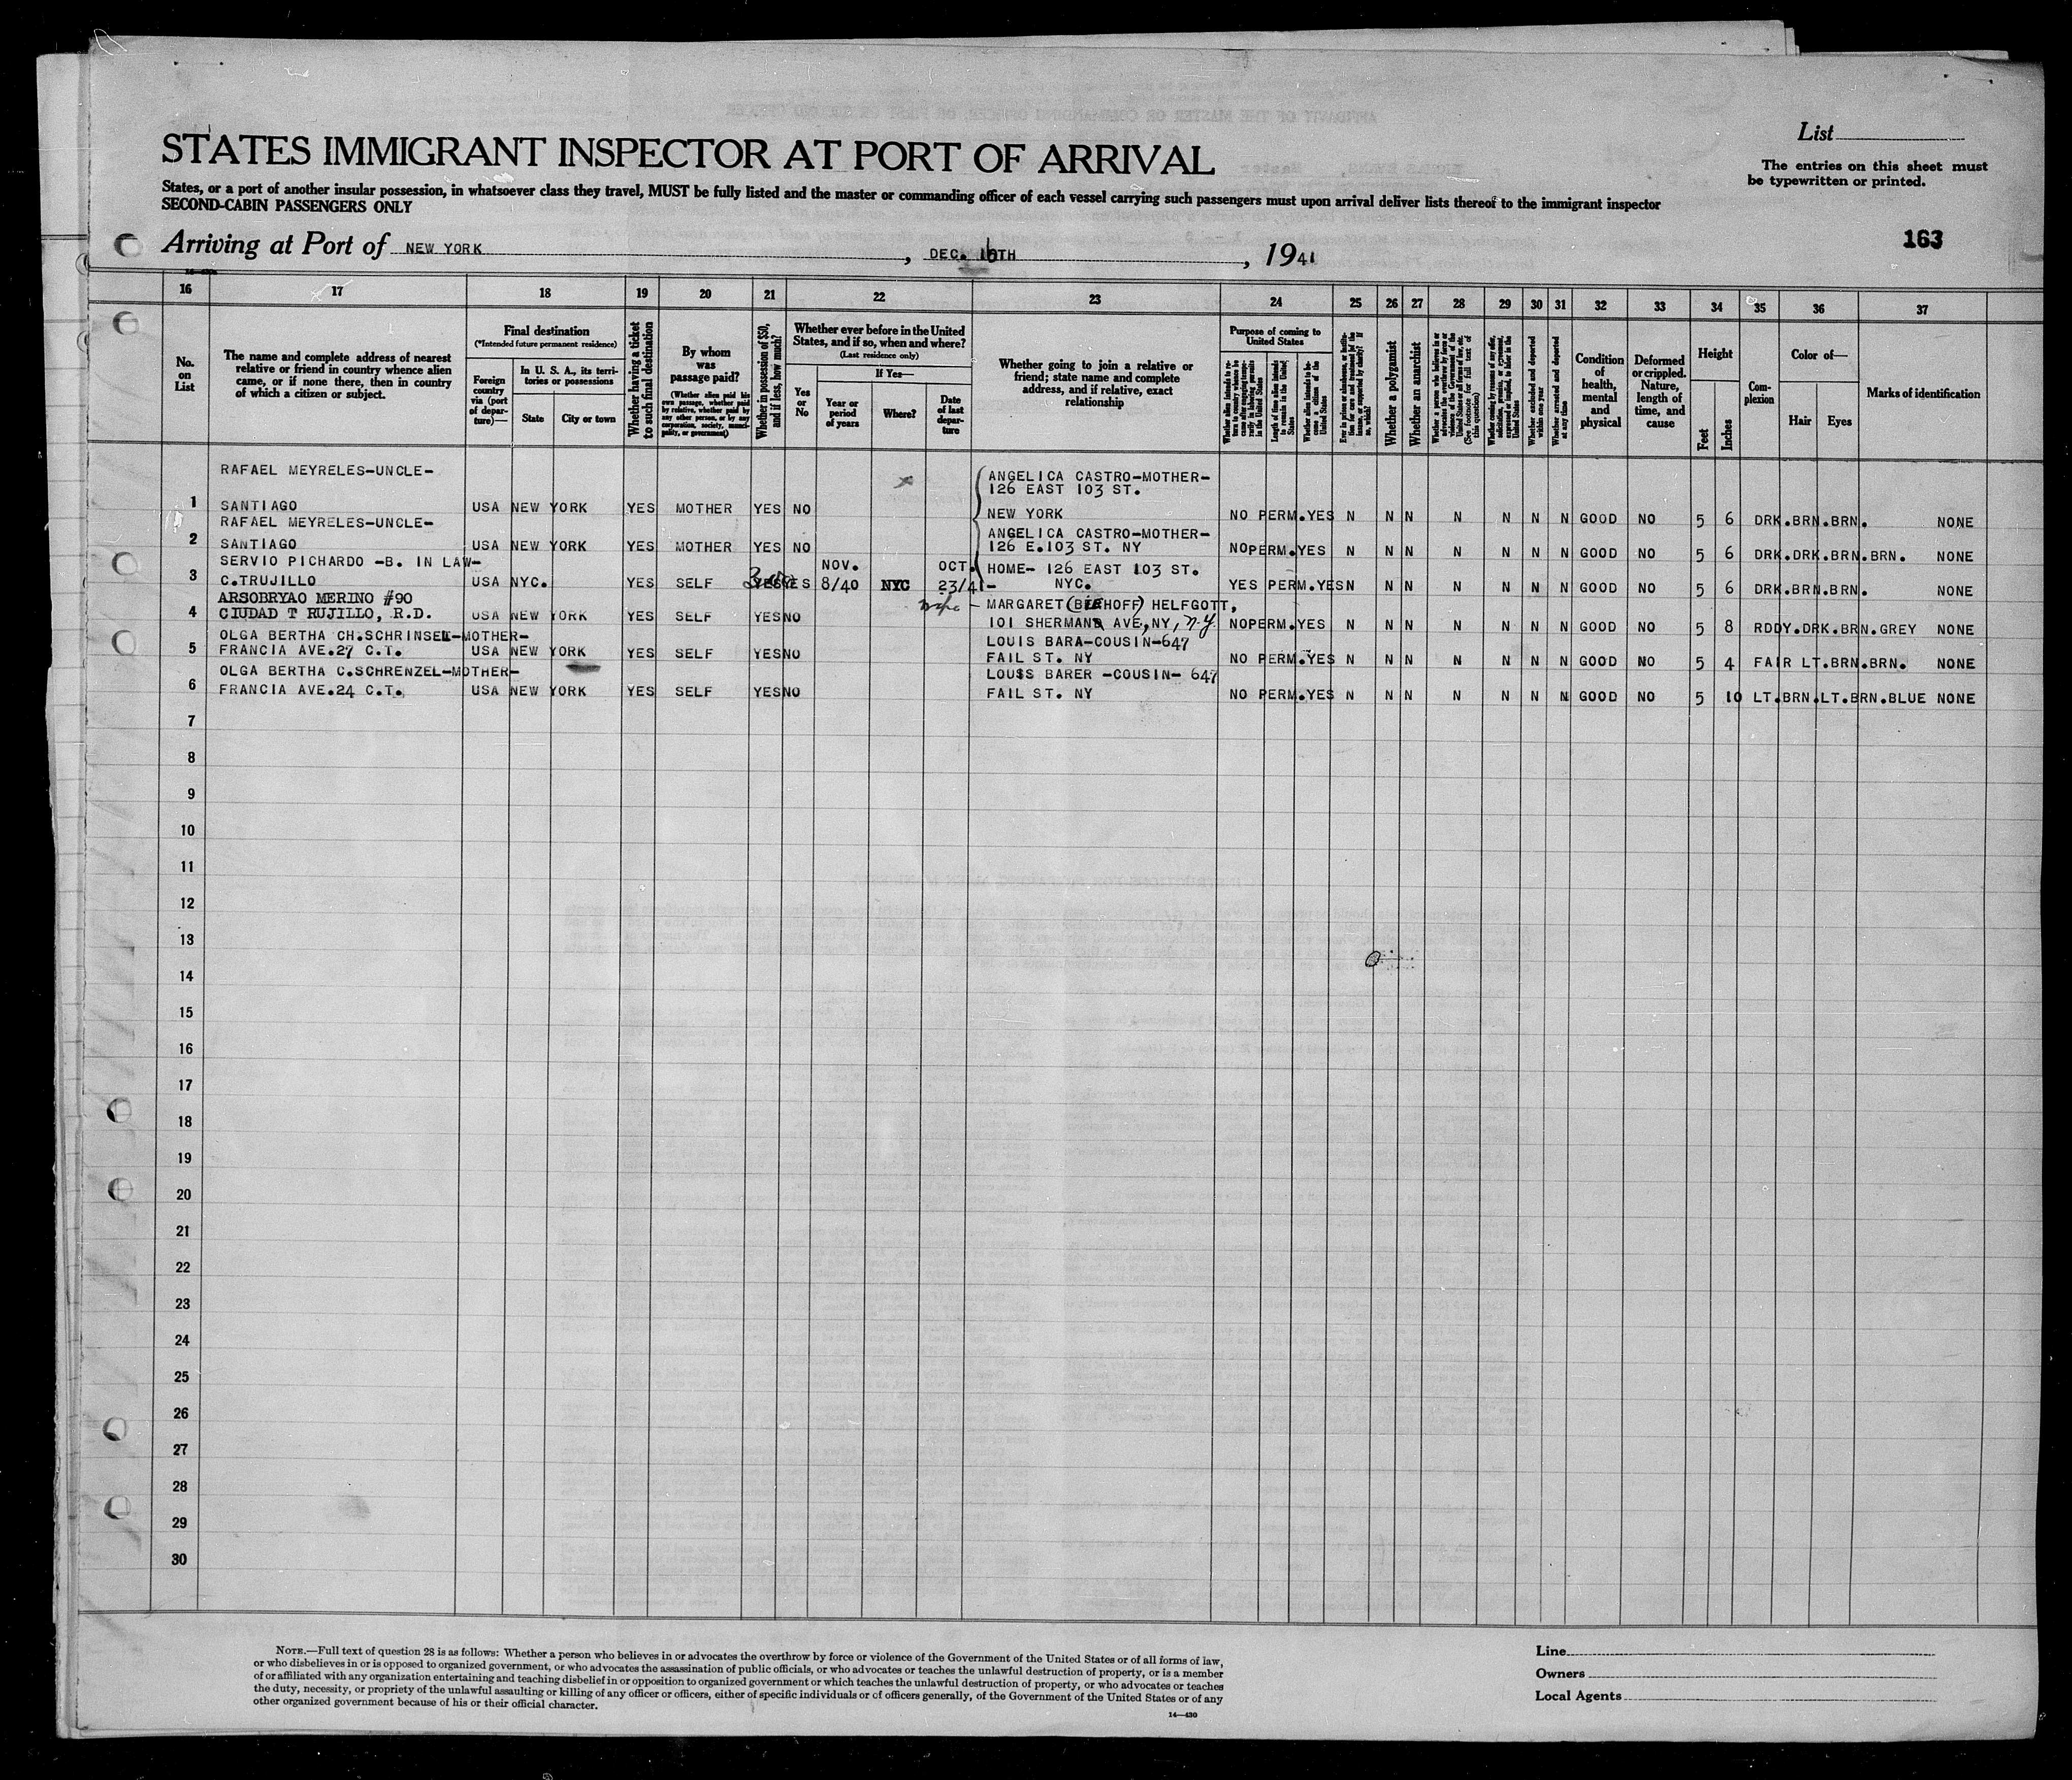 STATES IMMIGRANT INSPECTOR AT PORT OF ARRIVAL
List
The entries on this sheet must
be typewritten or printed.
States, or a port of another insular possession, in whatsoever class they travel, MUST be fully listed and the master or commanding officer of each vessel carrying such passengers must upon arrival deliver lists thereof to the immigrant inspector
SECOND-CABIN PASSENGERS ONLY
163
Arriving at Port of NEW YORK, DEC. TH, 1941
16 17 18 19 20 21 22 23 24 25 26 27 28 29 30 31 32 33 34 35 36 37
No.
on
List
The name and complete address of nearest
relative or friend in country whence alien
came, or if none there, then in country
of which a citizen or subject.
Final destination
(*Intended future permanent residence)
Foreign
country
via (port
of depar-
ture)—
In U. S. A., its terri-
tories or possessions
State
City or town
Whether having a ticket
to such final destination
By whom
was
passage paid?
(Whether alien paid his
own passage, whether paid
by relative, whether paid by
any other person, or by any
corporation, society, munici-
pality, or government)
Whether in possession of $50,
and if less, how much?
Whether ever before in the United
States, and if so, when and where?
(Last residence only)
Yes
or
No
If Yes—
Year or
period
of years
Where?
Date
of last
depar-
ture
Whether going to join a relative or
friend; state name and complete
address, and if relative, exact
relationship
Purpose of coming to
United States
Length of time alien intends
to remain in the United
States
Whether alien intends to be-
come a citizen of the
United States
Whether a polygamist
Whether an anarchist
Whether excluded and deported
within one year
Whether arrested and deported
at any time
Condition
of
health,
mental
and
physical
Deformed
or crippled.
Nature,
length of
time, and
cause
Height
Feet
Inches
Com-
plexion
Color of—
Hair
Eyes
Marks of identification
RAFAEL MEYRELES-UNCLE-
ANGELICA CASTRO-MOTHER-
126 EAST 103 ST.
1 SANTIAGO USA NEW YORK YES MOTHER YES NO NEW YORK NO PERM.YES N N N N N N N GOOD NO 5 6 DRK.BRN.BRN. NONE
RAFAEL MEYRELES-UNCLE-
ANGELICA CASTRO-MOTHER-
2 SANTIAGO USA NEW YORK YES MOTHER YES NO 126 E.103 ST. NY NOPERM.YES N N N N N N N GOOD NO 5 6 DRK.DRK.BRN.BRN. NONE
SERVIO PICHARDO -B. IN LAW- NOV. OCT. HOME- 126 EAST 103 ST.
3 C.TRUJILLO USA NYC. YES SELF YES 8/40 NYC 23/41- NYC. YES PERM.YES N N N N N N N GOOD NO 5 6 DRK.BRN.BRN. NONE
ARSOBRYAO MERINO #90 wife - MARGARET (HOFF) HELFGOTT,
4 CIUDAD T RUJILLO, R.D. USA NEW YORK YES SELF YES NO 101 SHERMAN AVE, NY, N.Y. NOPERM.YES N N N N N N N GOOD NO 5 8 RDDY.DRK.BRN.GREY NONE
OLGA BERTHA CH.SCHRINSEL-MOTHER- LOUIS BARA-COUSIN-647
5 FRANCIA AVE.27 C.T. USA NEW YORK YES SELF YES NO FAIL ST. NY NO PERM.YES N N N N N N N GOOD NO 5 4 FAIR LT.BRN.BRN. NONE
OLGA BERTHA C.SCHRENZEL-MOTHER- LOUSS BARER -COUSIN- 647
6 FRANCIA AVE.24 C.T. USA NEW YORK YES SELF YES NO FAIL ST. NY NO PERM.YES N N N N N N N GOOD NO 5 10 LT.BRN.LT.BRN.BLUE NONE
7
8
9
10
11
12
13
14
15
16
17
18
19
20
21
22
23
24
25
26
27
28
29
30
NOTE.—Full text of question 28 is as follows: Whether a person who believes in or advocates the overthrow by force or violence of the Government of the United States or of all forms of law,
or who disbelieves in or is opposed to organized government, or who advocates the assassination of public officials, or who advocates or teaches the unlawful destruction of property, or is a member
of or affiliated with any organization entertaining and teaching disbelief in or opposition to organized government or which teaches the unlawful destruction of property, or who advocates or teaches
the duty, necessity, or propriety of the unlawful assaulting or killing of any officer or officers, either of specific individuals or of officers generally, of the Government of the United States or of any
other organized government because of his or their official character.
14—430
Line
Owners
Local Agents